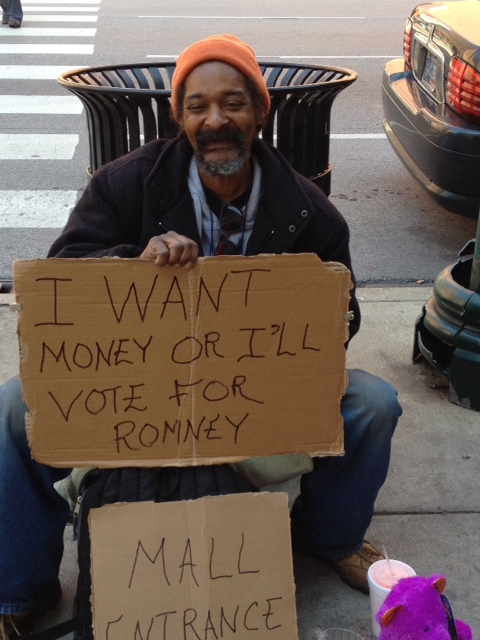 I WANT
MONEY OR I'LL
VOTE FOR
ROMNEY
MALL
ENTRANCE